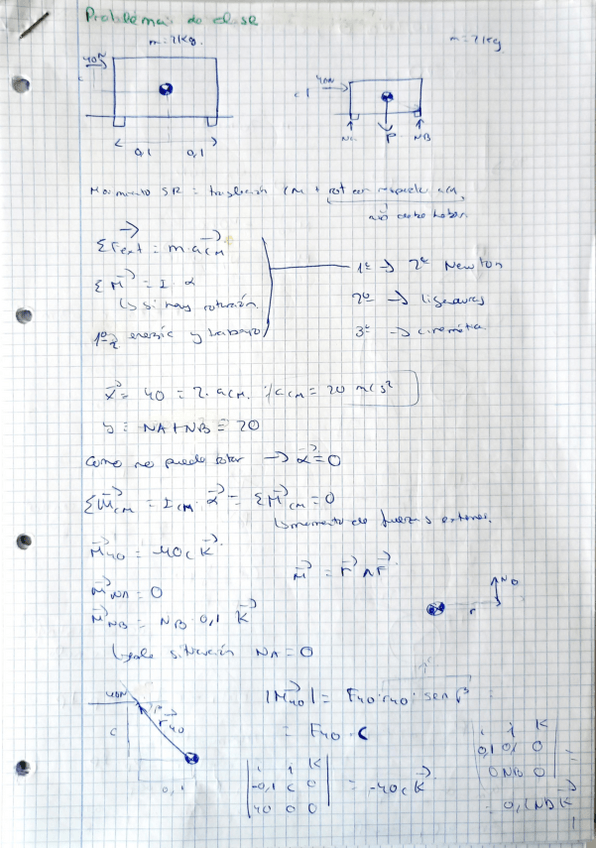 Problemas de clase
m=2kg.
m=2kg
40N
40N
c
NA
P
NB
0,1
0,1
Movimiento SR = traslación CM + rotar respecto CM,
no debe haber
ΣFext = m aCM
ΣM = I · α
↳ si hay rotación
energía y trabajo
1º → 2º Newton
2º → ligaduras
3º → cinemática
x = 40 = 2 · aCM. aCM = 20 m/s²
y = NA+NB = 20
Como no puede rotar → α = 0
ΣMCM = ICM · α = ΣMCM = 0
↳ momento de fuerzas externas.
M40 = -40c K
M = r ∧ F
MNA = 0
MNB = NB · 0,1 K
r
situación NA = 0
40N
r40
c
0,1
|M40| = F40 · r40 · sen β =
= F40 · c
i j K
-0,1 c 0
40 0 0
= -40c K
i j K
0 NB 0
= 0,1NB K